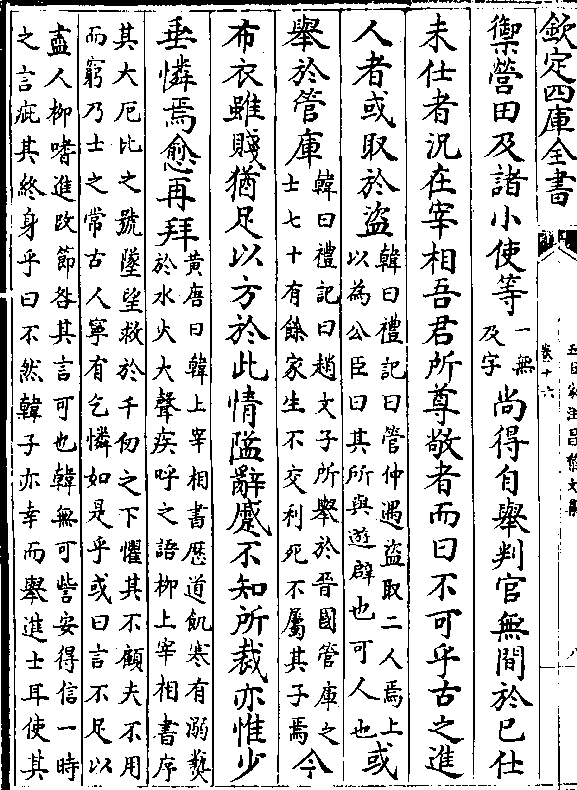 欽定四庫全書
卷十六
五百家注昌黎文集
八
禦營田及諸小使等一無及字尚得自舉判官無間於已仕
未仕者況在宰相吾君所尊敬者而曰不可乎古之進
人者或取於盜韓曰禮記曰管仲遇盜取二人焉上以為公臣曰其所與遊辟也可人也或
舉於管庫韓曰禮記曰趙文子所舉於晉國管庫之士七十有餘家生不交利死不屬其子焉今
布衣雖賤猶足以方於此情隘辭蹙不知所裁亦惟少
垂憐焉愈再拜黃唐曰韓上宰相書歷道飢寒有溺爇於水火大聲疾呼之語柳上宰相書序
其大厄比之號墜望救於千仞之下懼其不顧夫不用
而窮乃士之常古人寧有乞憐如是乎或曰言不足以
盡人柳嗜進改節咎其言可也韓無可訾安得信一時
之言疵其終身乎曰不然韓子亦幸而舉進士耳使其